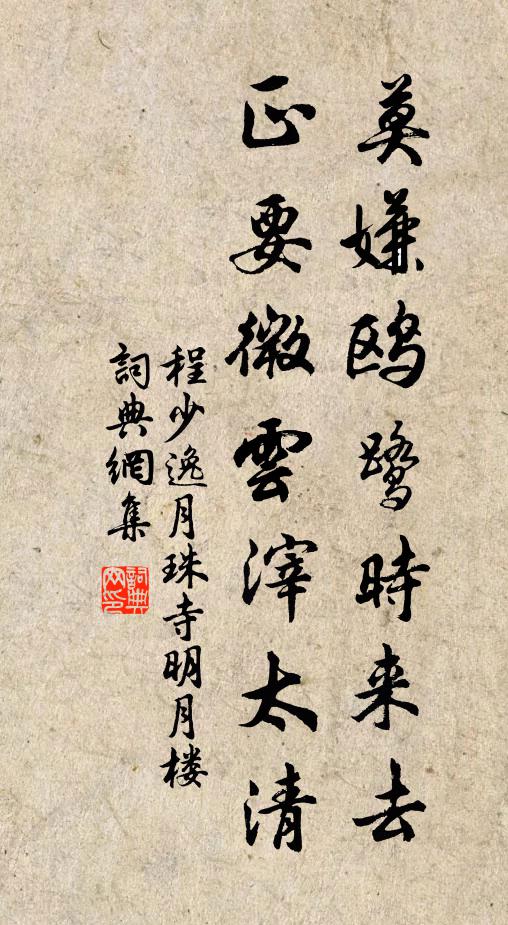 莫嫌鸥鹭時来去
正要微雲滓太清
程少逸月珠寺明月楼
詞典網集
詞典網印